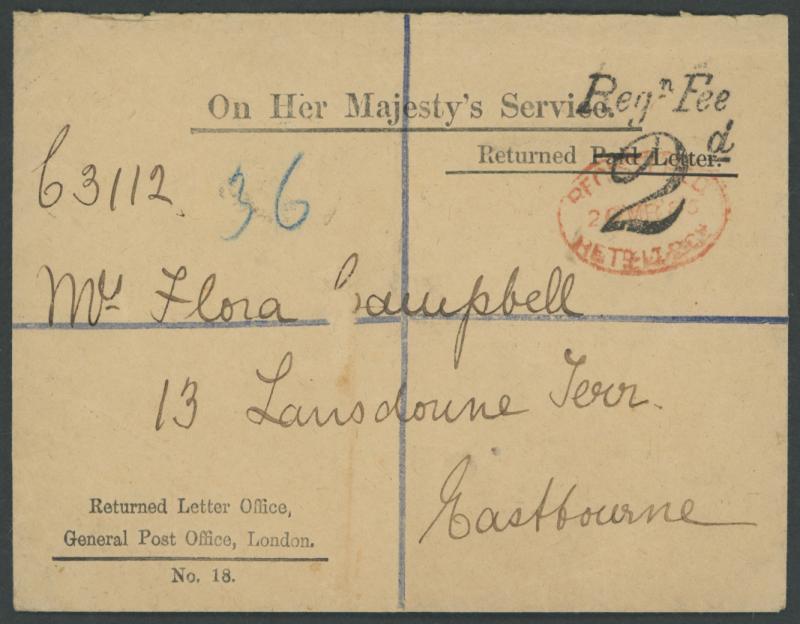 On Her Majesty's Service.
Regn Fee
2d
Returned Paid Letter.
REGISTERED
63112.
36
Mrs Flora Campbell
13 Lansdowne Terr.
Eastbourne
Returned Letter Office,
General Post Office, London.
No. 18.